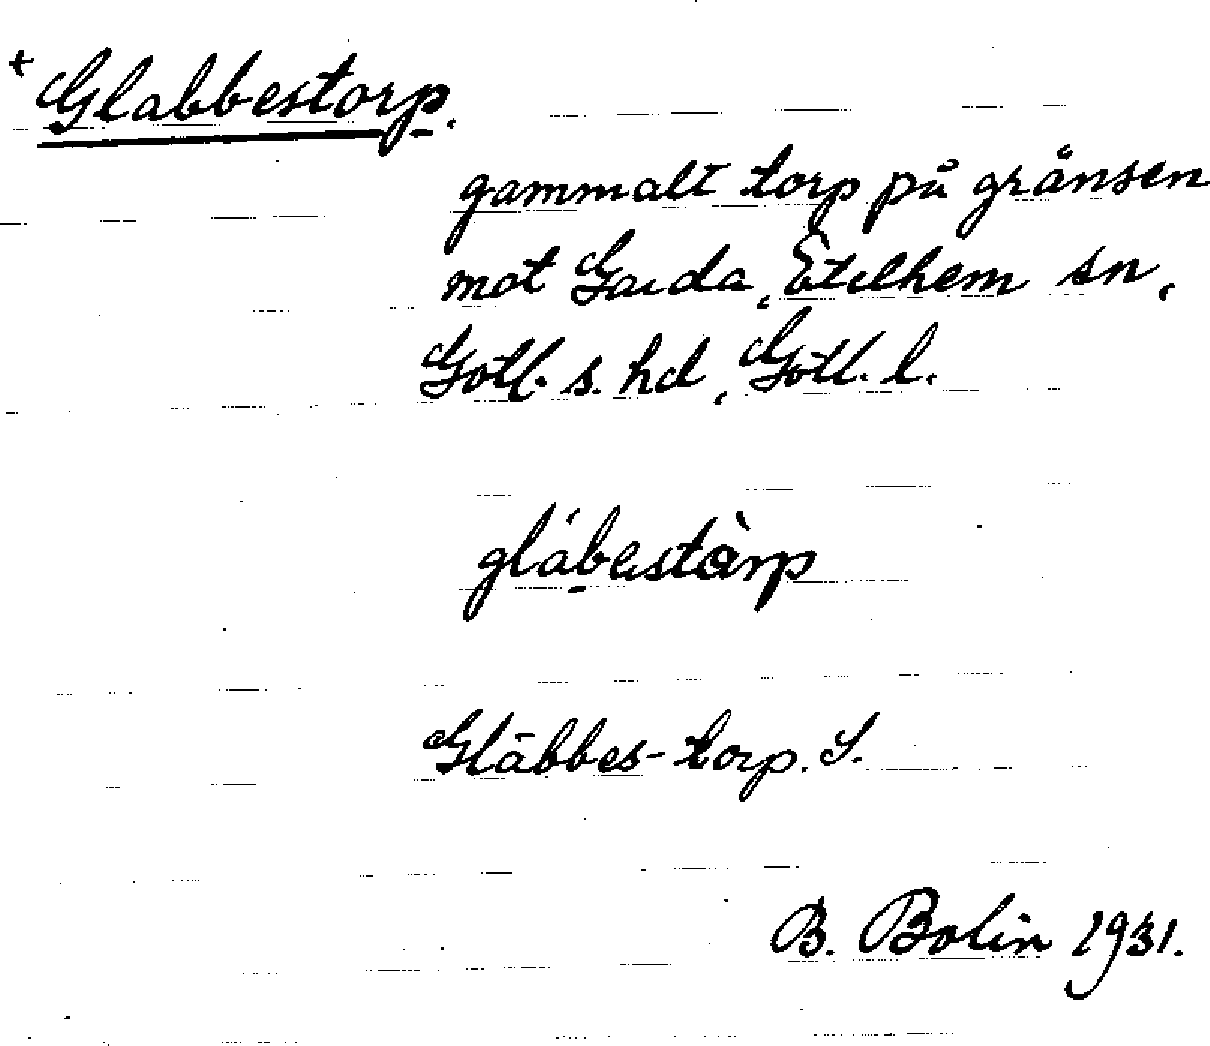 +Glabbestorp.
gammalt torp på gränsen
mot Garda, Etelhem sn,
Gotl. s. hd, Gotl. l.
glábestàrp
Glābbes-torp. S.
B. Bolin 1931.